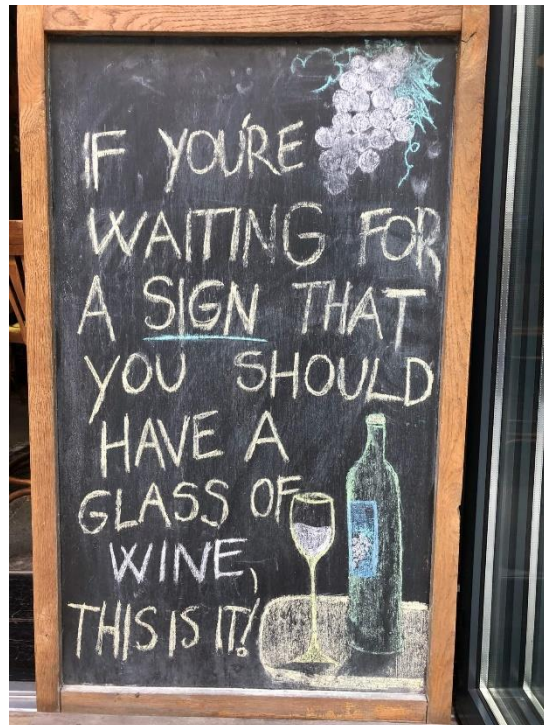 IF YOU'RE
WAITING FOR
A SIGN THAT
YOU SHOULD
HAVE A
GLASS OF
WINE,
THIS IS IT!